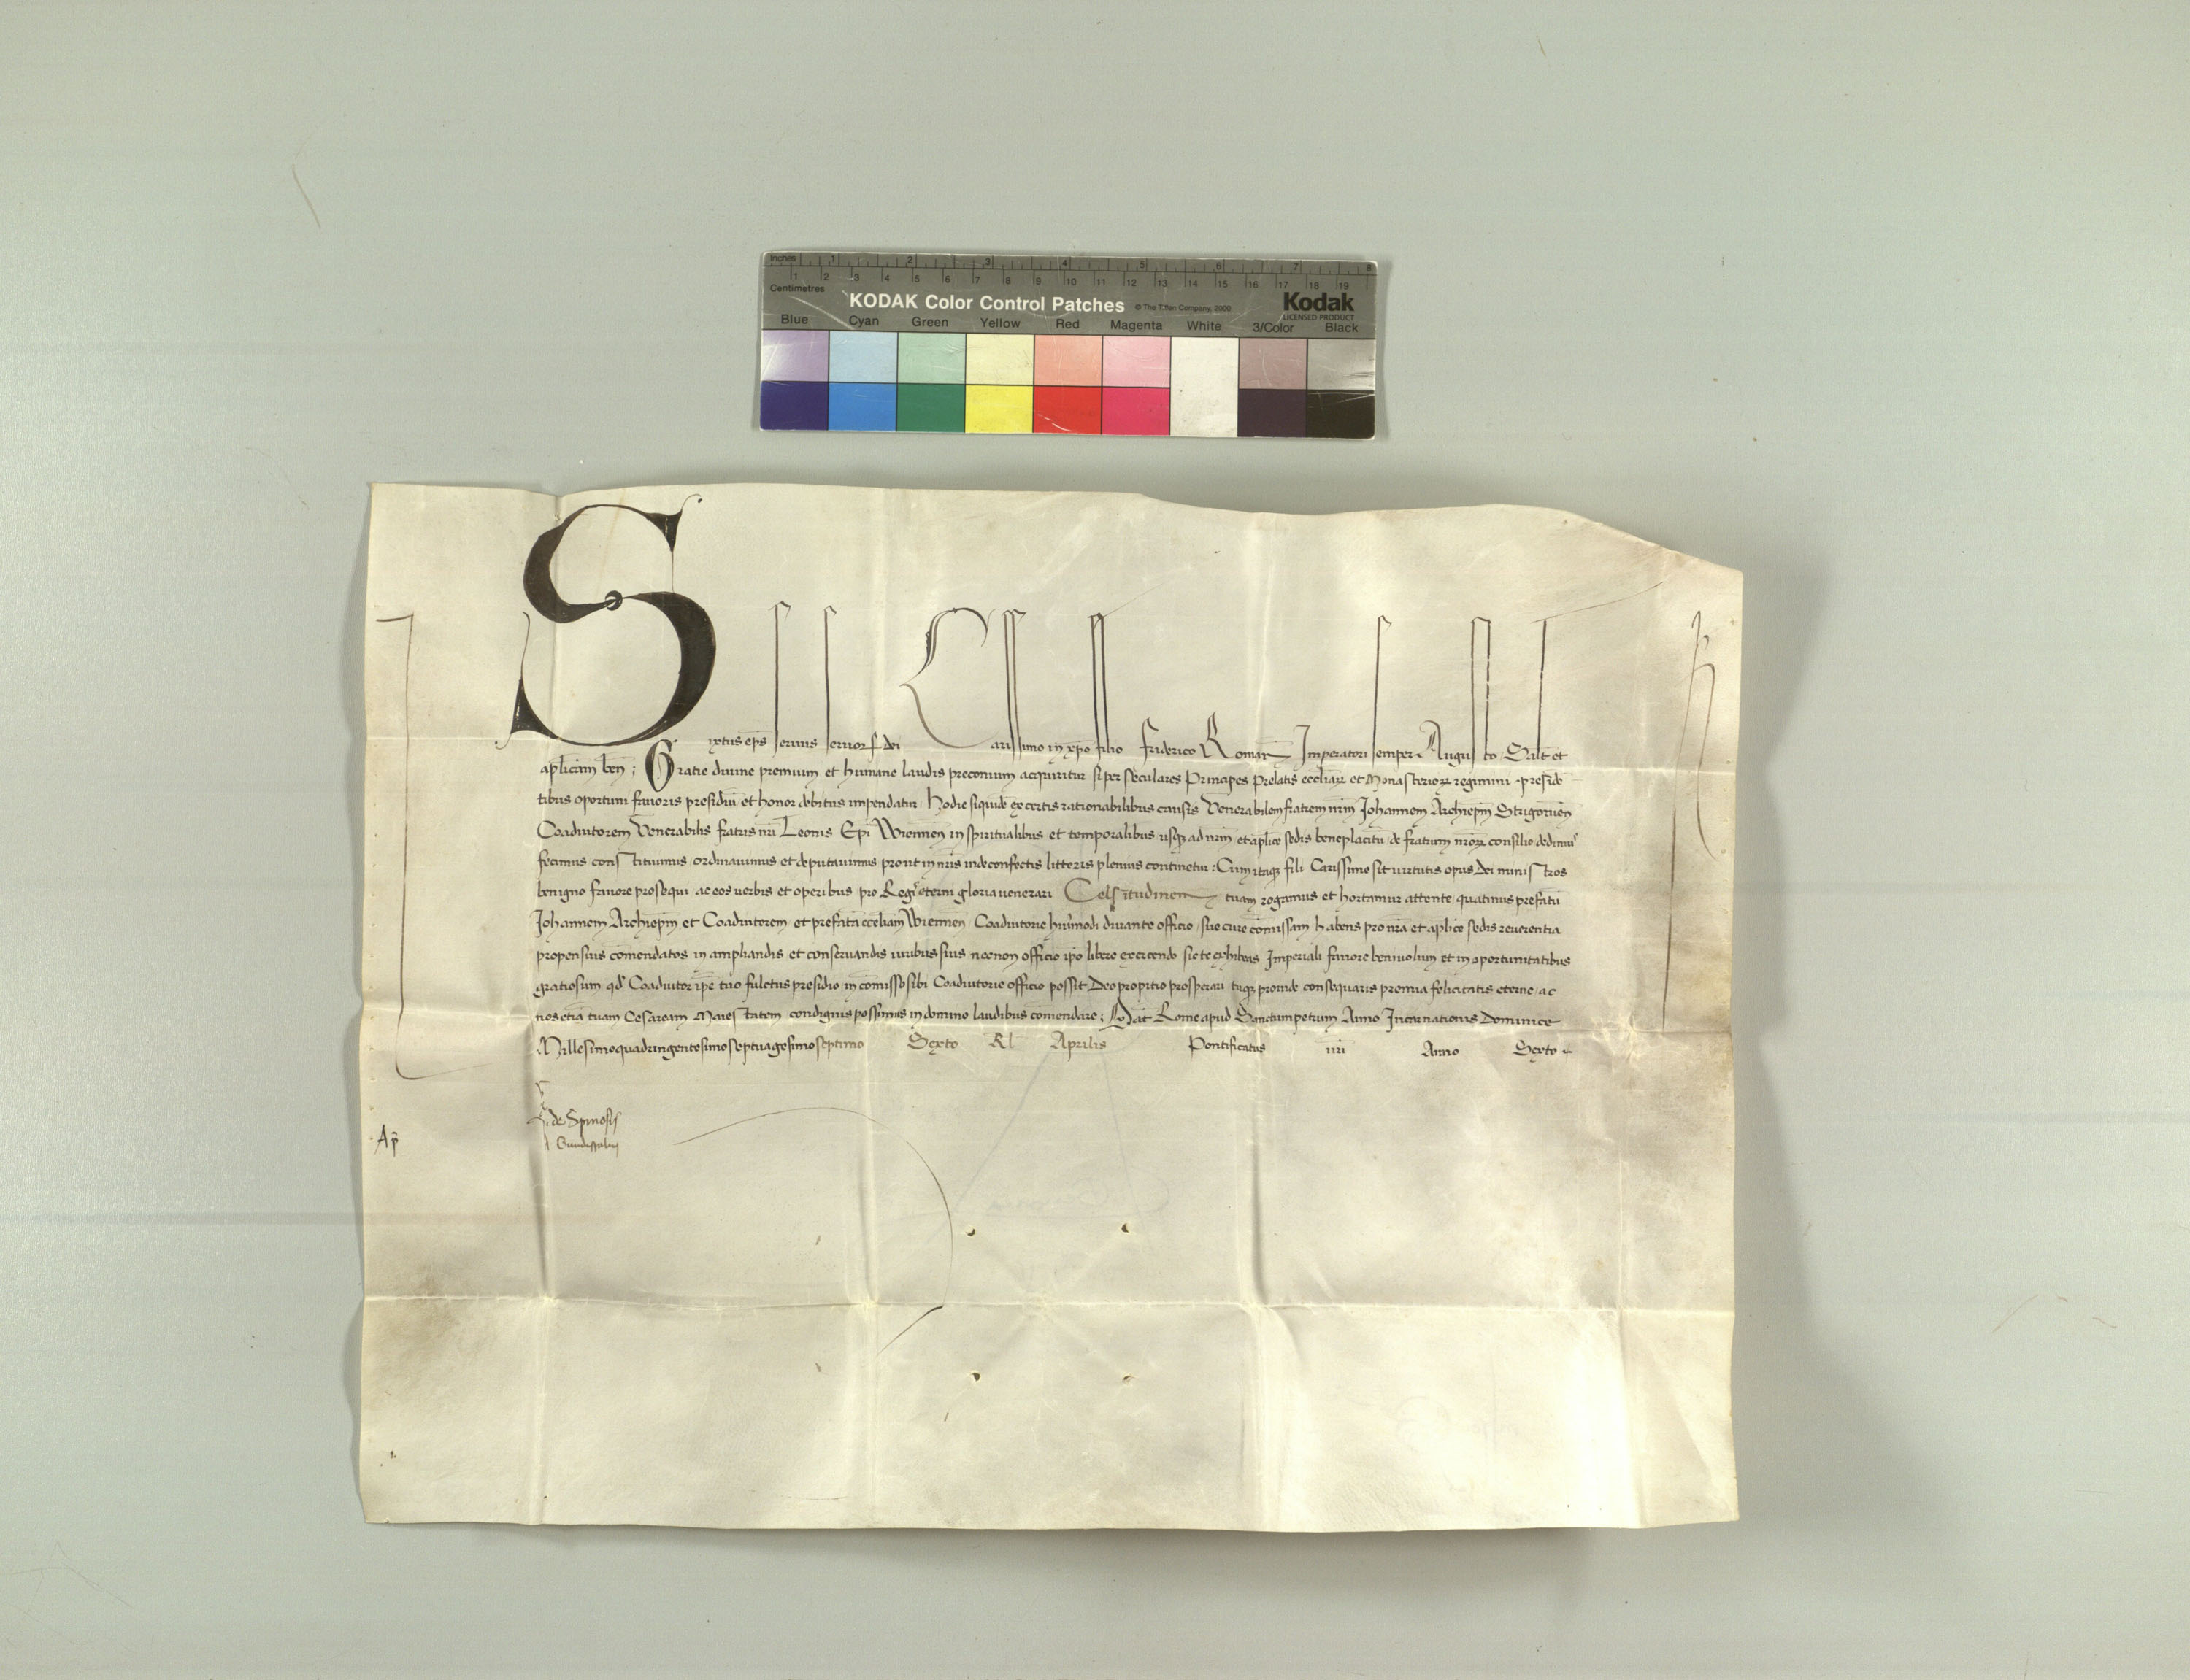 Inches 1 2 3 4 5 6 7 8
1 2 3 4 5 6 7 8 9 10 11 12 13 14 15 16 17 18 19
Centimetres
KODAK Color Control Patches © The Tiffen Company, 2000 Kodak
LICENSED PRODUCT
Blue Cyan Green Yellow Red Magenta White 3/Color Black
Sixtus ep̄s servus servorꝝ dei Carissimo in xp̄o filio Friderico Roman̄ Imperatori semper Augusto Salt̄ et
aplicam ben̄; Gratie divine premium et humane laudis preconium acquiritur si per seculares Principes Prelatis eccliaꝝ et Monasterioꝝ regimini preside
tibus oportuni favoris presidiū et honor debitus impendatur. Hodie siquidē ex certis rationabilibus causis Venerabilem fratrem nr̄m Johannem Archiep̄m Strigonien̄
Coadiutorem Venerabilis fratris nr̄i Leonis Ep̄i Wiennen̄ in spiritualibus et temporalibus usqꝫ ad nr̄m et aplice sedis beneplacitū de fratrum nr̄oꝝ consilio dedimꝰ
fecimus constituimus ordinavimus et deputavimus prout in nr̄is inde confectis litteris plenius continetur: Cum itaqꝫ fili Carissime sit virtutis opus dei ministros
benigno favore prosequi ac eos verbis et operibus pro Regꝭ eterni gloria venerari Celsitudinem tuam rogamus et hortamur attente quatinus prefatū
Johannem Archiep̄m et Coadiutorem et prefatā eccliam Wiennen̄ Coadiutorie hmōi durante officio sue cure cōmissam habens pro nr̄a et aplice sedis reverentia
propensius cōmendatos in ampliandis et conservandis iuribus suis necnon officio ip̄o libere exercendo sic te exhibeas Imperiali favore benivolum et in oportunitatibus
gratiosum qd̄ Coadiutor ip̄e tuo fulctus presidio in cōmisso sibi Coadiutorie officio possit Deo propitio prosperari tuqꝫ proinde consequaris premia felicitatis eterne ac
nos etiā tuam Cesaream Maiestatem condignis possimus in domino laudibus cōmendare; Dat̄ Rome apud Sanctumpetrum Anno Incarnationis Dominice
Millesimoquadringentesimoseptuagesimoseptimo Sexto Kl̄ Aprilis Pontificatus nr̄i Anno Sexto
de Spinosis
Ap̄